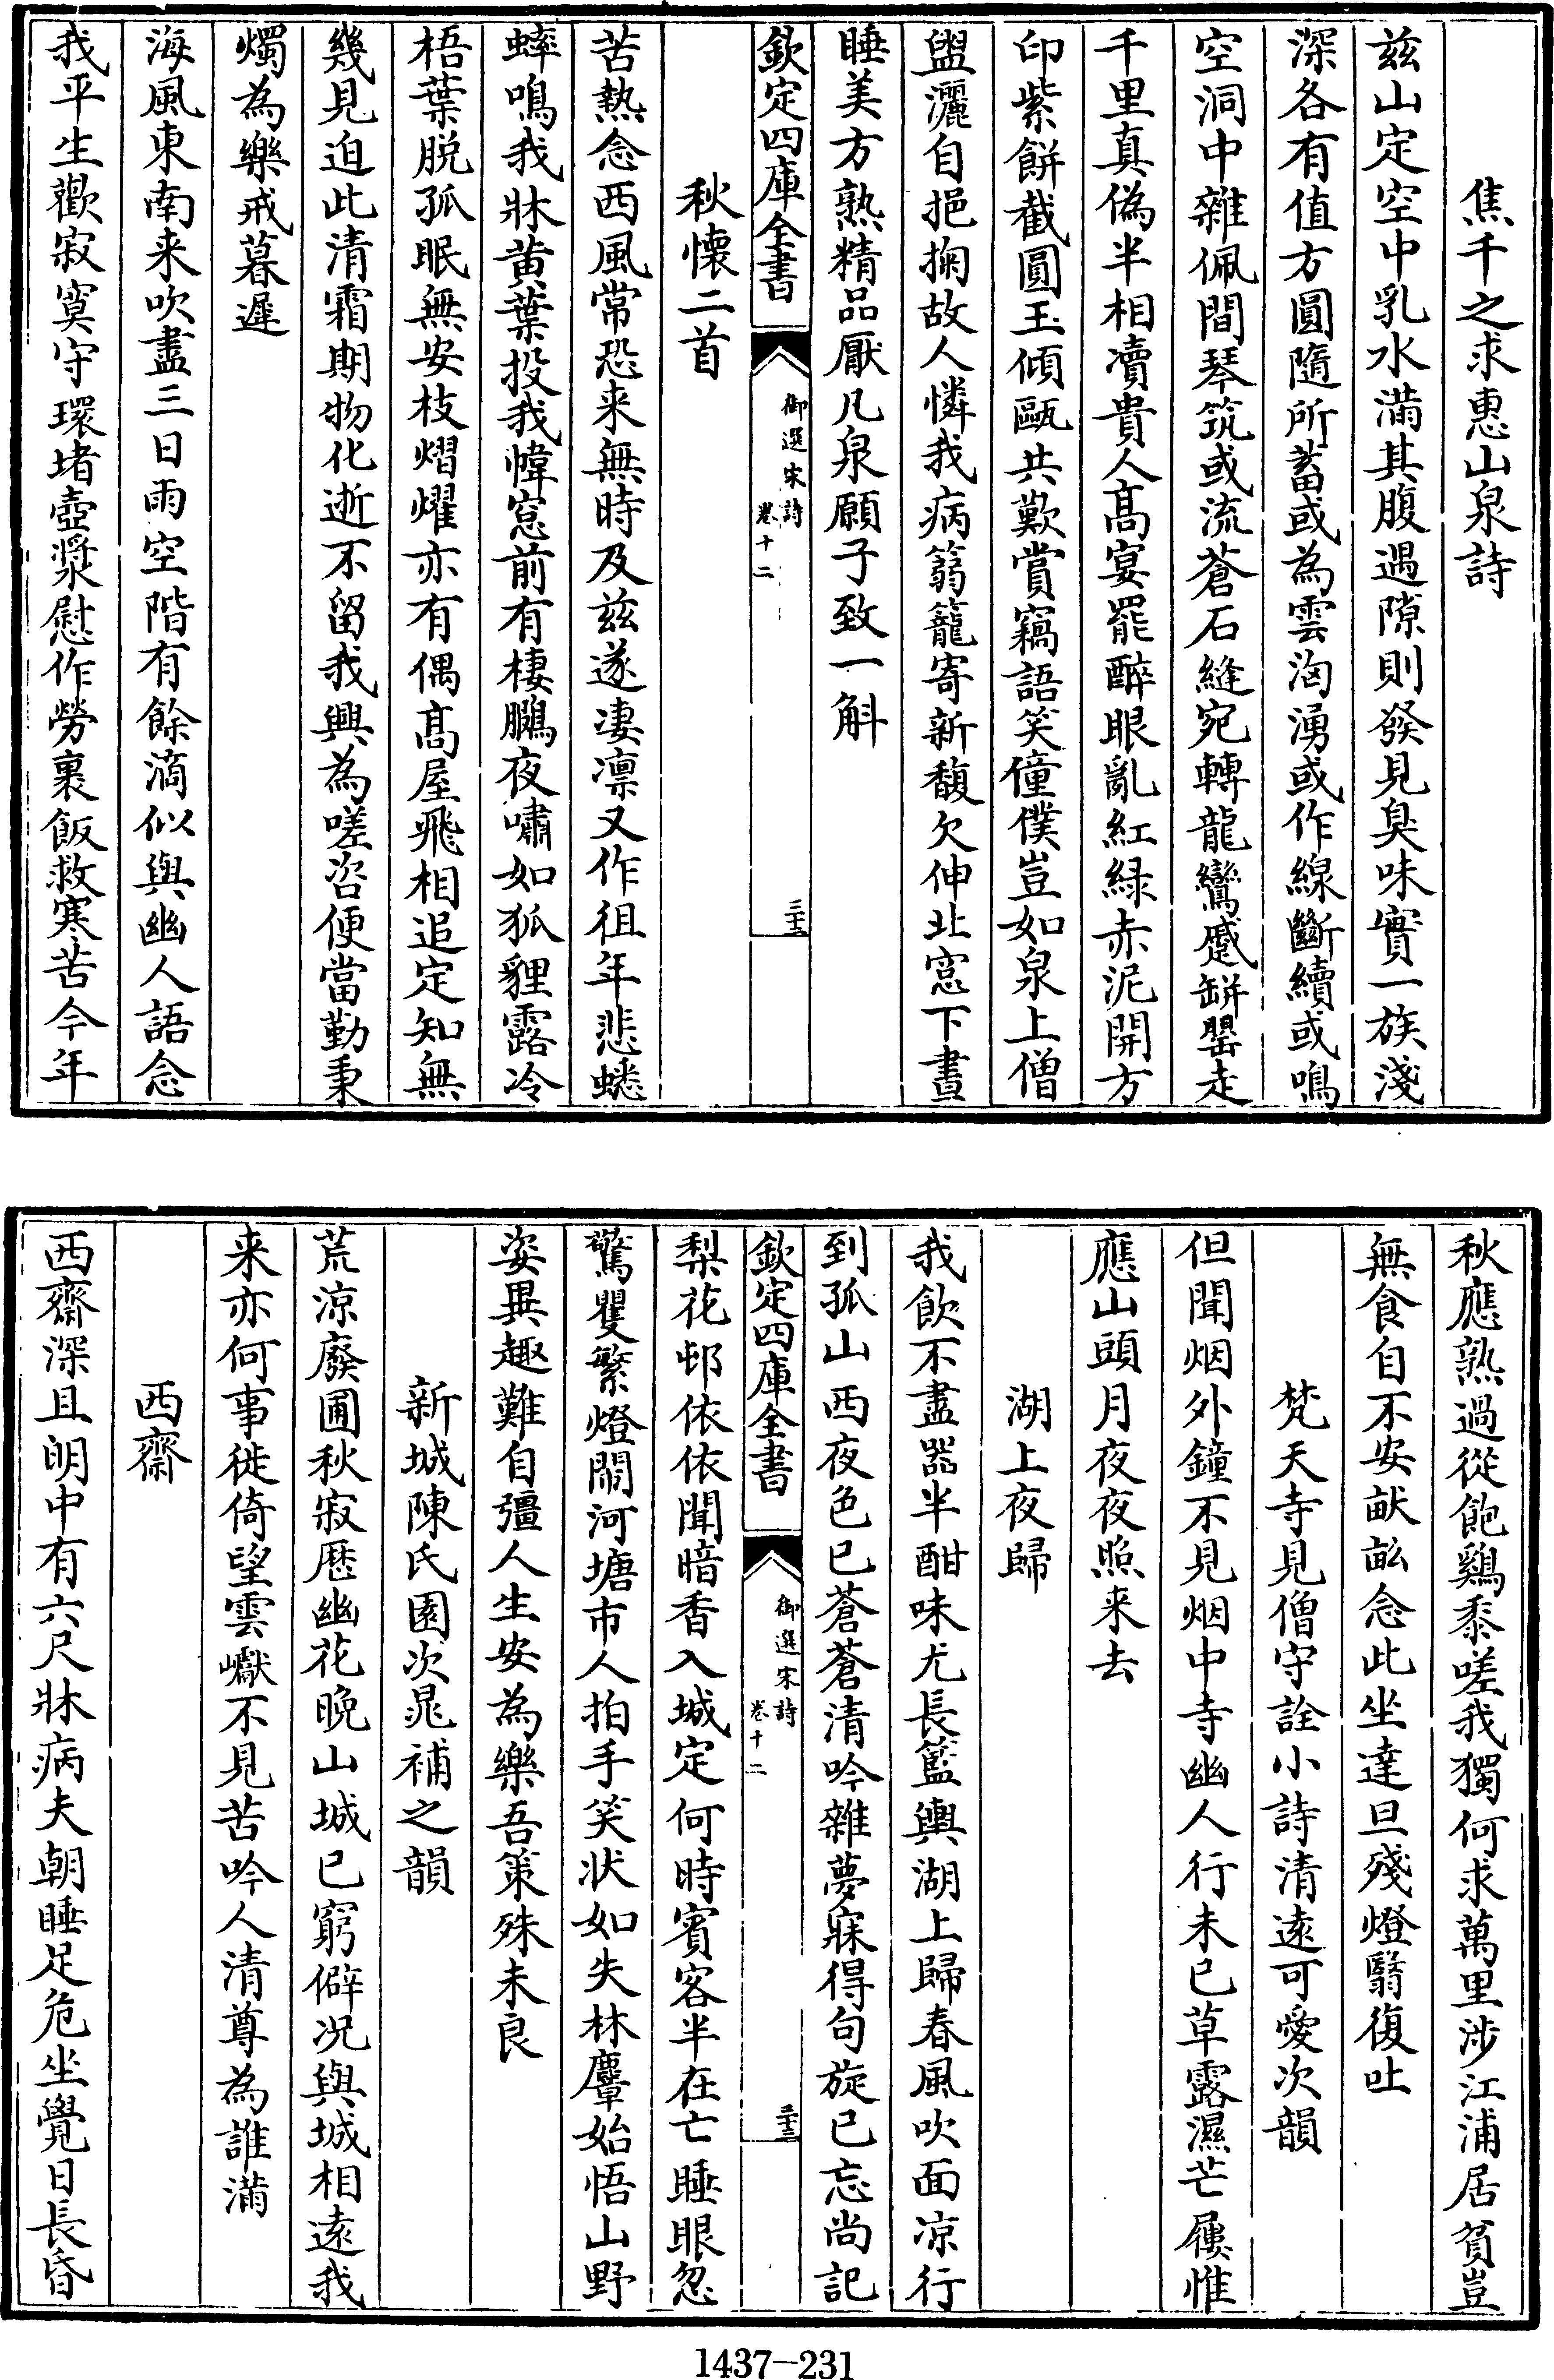 焦千之求惠山泉詩
兹山定空中乳水滿其腹遇隙則發見臭味實一族淺
深各有值方圓隨所蓄或為雲洶湧或作線斷續或鳴
空洞中雜佩間琴筑或流蒼石縫宛轉龍鸞蹙缾罌走
千里真偽半相瀆貴人髙宴罷醉眼亂紅緑赤泥開方
印紫餅截圓玉傾甌共歎賞竊語笑僮僕豈如泉上僧
盥灑自挹掬故人憐我病蒻籠寄新馥欠伸北窓下晝
睡美方熟精品厭凡泉願子致一斛
欽定四庫全書
御選宋詩
卷十二
三十三
秋懷二首
苦熱念西風常恐来無時及兹遂凄凛又作徂年悲蟋
蟀鳴我牀黄葉投我幃窓前有棲鵬夜嘯如狐貍露冷
梧葉脱孤眠無安枝熠燿亦有偶髙屋飛相追定知無
幾見迫此清霜期物化逝不留我興為嗟咨便當勤秉
燭為樂戒暮遲
海風東南来吹盡三日雨空階有餘滴似與幽人語念
我平生歡寂寞守環堵壺漿慰作勞裹飯救寒苦今年
秋應熟過從飽鷄黍嗟我獨何求萬里涉江浦居貧豈
無食自不安畎畝念此坐達旦殘燈翳復吐
梵天寺見僧守詮小詩清逺可愛次韻
但聞烟外鐘不見烟中寺幽人行未已草露濕芒屨惟
應山頭月夜夜照来去
湖上夜歸
我飲不盡器半酣味尤長籃輿湖上歸春風吹面凉行
到孤山西夜色已蒼蒼清吟雜夢寐得句旋已忘尚記
欽定四庫全書
御選宋詩
卷十二
三十三
梨花邨依依聞暗香入城定何時賓客半在亡睡眼忽
驚矍繁燈閙河塘市人拍手笑状如失林麞始悟山野
姿異趣難自彊人生安為樂吾策殊未良
新城陳氏園次晁補之韻
荒凉廢圃秋寂歴幽花晚山城已窮僻况與城相逺我
来亦何事徙倚望雲巘不見苦吟人清尊為誰滿
西齋
西齋深且明中有六尺牀病夫朝睡足危坐覺日長昏
1437-231